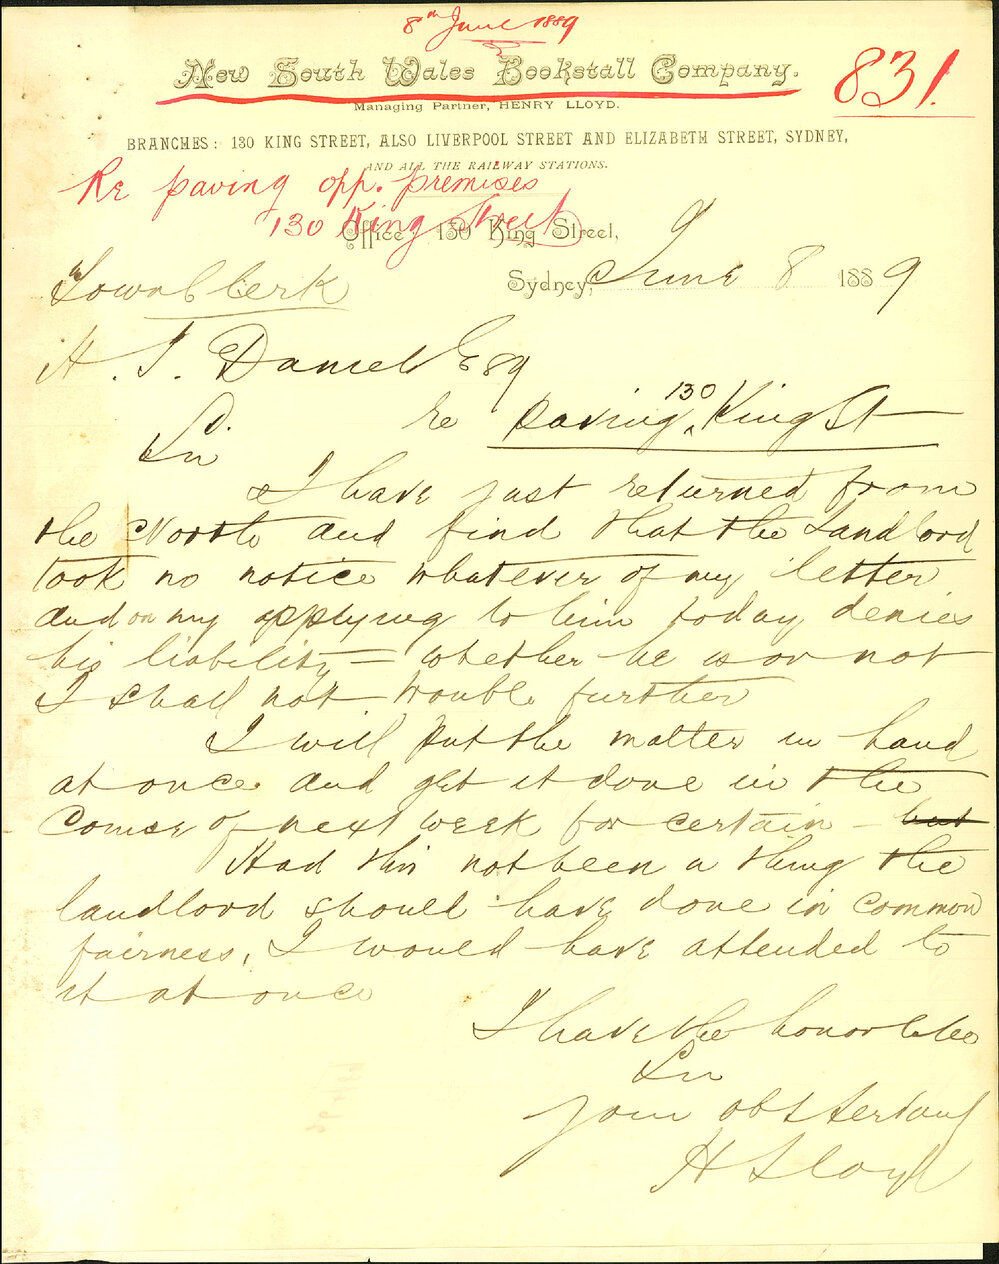 8th June 1889
New South Wales Bookstall Company.
831.
Managing Partner, HENRY LLOYD.
BRANCHES: 130 KING STREET, ALSO LIVERPOOL STREET AND ELIZABETH STREET, SYDNEY,
AND ALL THE RAILWAY STATIONS.
Re paving opp. premises
130 King Street
Office 130 King Street,
Sydney, June 8 1889
Town Clerk
H. J. Daniel Esq
re paving 130 King St
Sir
I have just returned from
the North and find that the Landlord
took no notice whatever of my letter
and on my applying to him today denies
his liability = whether he is or not
I shall not trouble further
I will put the matter in hand
at once and get it done in the
Course of next week for certain – but
Had this not been a thing the
landlord should have done in common
fairness, I would have attended to
it at once
I have the honor to be
Sir
your obt Servant
H Lloyd